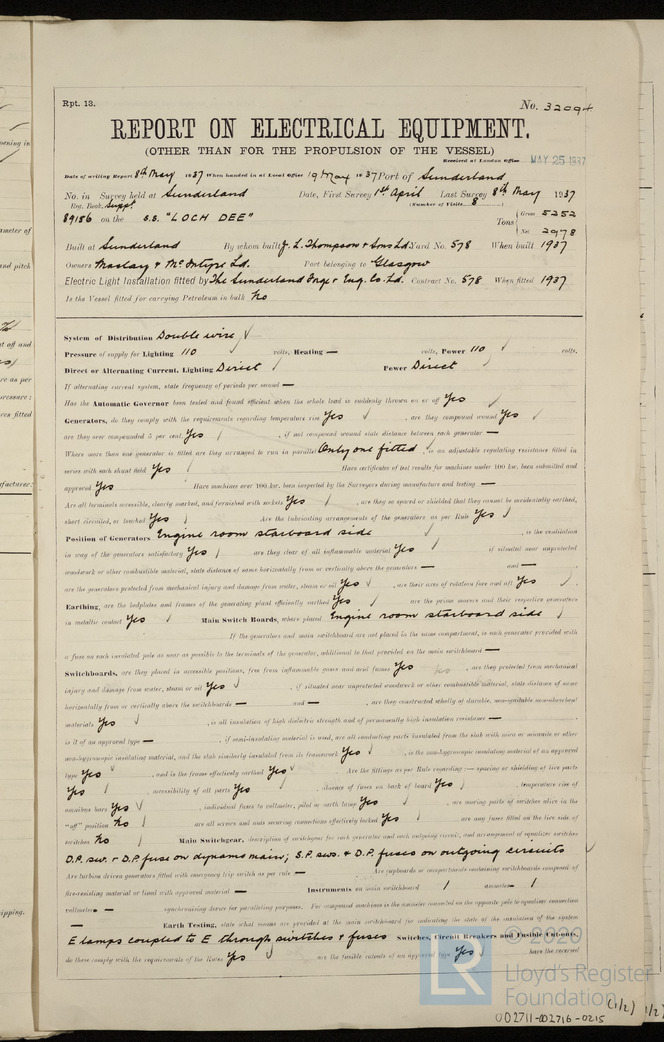 Rpt. 13.
No. 32094
REPORT ON ELECTRICAL EQUIPMENT.
(OTHER THAN FOR THE PROPULSION OF THE VESSEL)
Received at London Office MAY 25 1937
Date of writing Report 8th May 1937 When handed in at Local Office 19 May 1937 Port of Sunderland
No. in Survey held at Sunderland Date, First Survey 1st April Last Survey 8th May 1937
Reg. Book. Suppt. (Number of Visits 8)
89156 on the S.S. "LOCH DEE" Tons { Gross 5252
Net 2978
Built at Sunderland By whom built J. L. Thompson & Sons Ld. Yard No. 578 When built 1937
Owners Maclay & McIntyre Ld. Port belonging to Glasgow
Electric Light Installation fitted by The Sunderland Forge & Eng. Co. Ld. Contract No. 578 When fitted 1937
Is the Vessel fitted for carrying Petroleum in bulk No
System of Distribution Double wire
Pressure of supply for Lighting 110 volts, Heating — volts, Power 110 volts.
Direct or Alternating Current, Lighting Direct Power Direct
If alternating current system, state frequency of periods per second —
Has the Automatic Governor been tested and found efficient when the whole load is suddenly thrown on or off Yes
Generators, do they comply with the requirements regarding temperature rise Yes , are they compound wound Yes
are they over compounded 5 per cent Yes , if not compound wound state distance between each generator —
Where more than one generator is fitted are they arranged to run in parallel Only one fitted , is an adjustable regulating resistance fitted in
series with each shunt field Yes Have certificates of test results for machines under 100 kw. been submitted and
approved Yes Have machines over 100 kw. been inspected by the Surveyors during manufacture and testing —
Are all terminals accessible, clearly marked, and furnished with sockets Yes , are they so spaced or shielded that they cannot be accidentally earthed,
short circuited, or touched Yes Are the lubricating arrangements of the generators as per Rule Yes
Position of Generators Engine room starboard side , is the ventilation
in way of the generators satisfactory Yes , are they clear of all inflammable material Yes if situated near unprotected
woodwork or other combustible material, state distance of same horizontally from or vertically above the generators — and —
are the generators protected from mechanical injury and damage from water, steam or oil Yes , are their axes of rotation fore and aft Yes
Earthing, are the bedplates and frames of the generating plant efficiently earthed Yes are the prime movers and their respective generators
in metallic contact Yes Main Switch Boards, where placed Engine room starboard side
If the generators and main switchboard are not placed in the same compartment, is each generator provided with
a fuse on each insulated pole as near as possible to the terminals of the generator, additional to that provided on the main switchboard —
Switchboards, are they placed in accessible positions, free from inflammable gases and acid fumes Yes , are they protected from mechanical
injury and damage from water, steam or oil Yes , if situated near unprotected woodwork or other combustible material, state distance of same
horizontally from or vertically above the switchboards — and — , are they constructed wholly of durable, non-ignitable non-absorbent
materials Yes , is all insulation of high dielectric strength and of permanently high insulation resistance —
is it of an approved type — , if semi-insulating material is used, are all conducting parts insulated from the slab with mica or micanite or other
non-hygroscopic insulating material, and the slab similarly insulated from its framework Yes , is the non-hygroscopic insulating material of an approved
type Yes , and is the frame effectively earthed Yes Are the fittings as per Rule regarding:— spacing or shielding of live parts
Yes , accessibility of all parts Yes , absence of fuses on back of board Yes , temperature rise of
omnibus bars Yes , individual fuses to voltmeter, pilot or earth lamp Yes , are moving parts of switches alive in the
"off" position No are all screws and nuts securing connections effectively locked Yes are any fuses fitted on the live side of
switches No Main Switchgear, description of switchgear for each generator and each outgoing circuit, and arrangement of equaliser switches
D.P. sw. & D.P. fuse on dynamo main; S.P. sws. & D.P. fuses on outgoing circuits
Are turbine driven generators fitted with emergency trip switch as per rule — Are cupboards or compartments containing switchboards composed of
fire-resisting material or lined with approved material — Instruments on main switchboard 1 ammeters 1
voltmeters — synchronising device for paralleling purposes. For compound machines is the ammeter connected on the opposite pole to equaliser connection
— Earth Testing, state what means are provided at the main switchboard for indicating the state of the insulation of the system
E lamps coupled to E through switches & fuses Switches, Circuit Breakers and Fusible Cutouts,
do these comply with the requirements of the Rules Yes are the fusible cutouts of an approved type Yes have the reversed
© 2020
Lloyd's Register
Foundation
002711-002716-0215 (1/2)